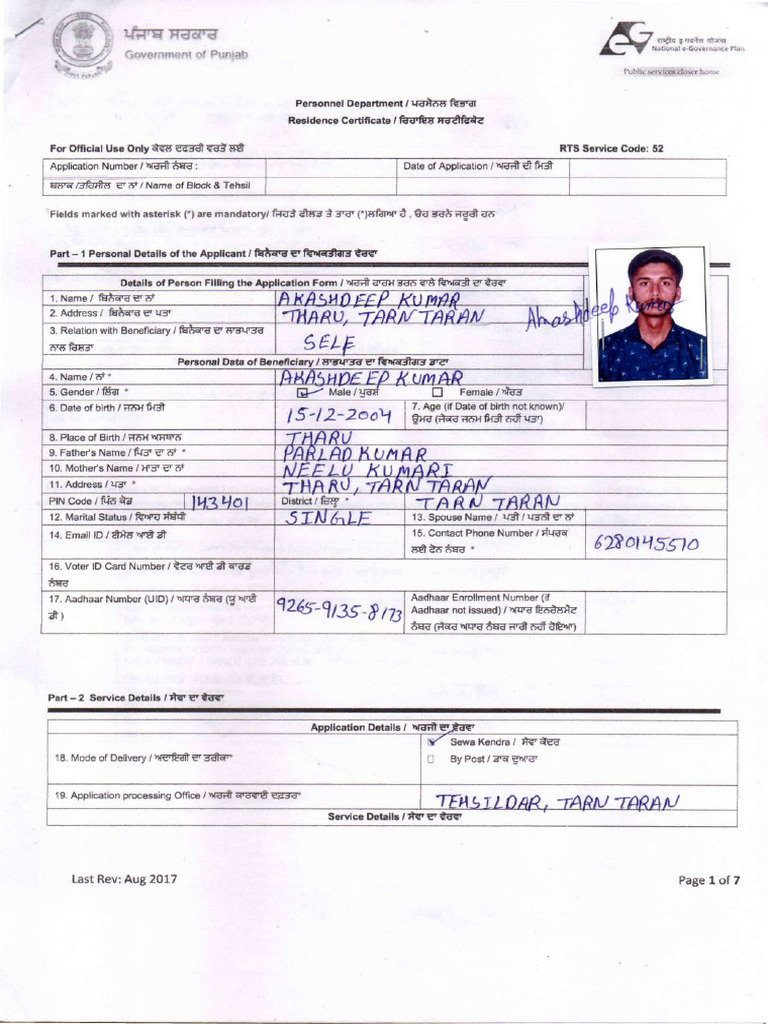 ਪੰਜਾਬ ਸਰਕਾਰ
Government of Punjab
राष्ट्रीय ई-गवर्नेंस योजना
National e-Governance Plan
Public services closer home
Personnel Department / ਪਰਸੋਨਲ ਵਿਭਾਗ
Residence Certificate / ਰਿਹਾਇਸ਼ ਸਰਟੀਫਿਕੇਟ
For Official Use Only ਕੇਵਲ ਦਫਤਰੀ ਵਰਤੋਂ ਲਈ RTS Service Code: 52
Application Number / ਅਰਜੀ ਨੰਬਰ : Date of Application / ਅਰਜੀ ਦੀ ਮਿਤੀ
ਬਲਾਕ /ਤਹਿਸੀਲ ਦਾ ਨਾਂ / Name of Block & Tehsil
Fields marked with asterisk (*) are mandatory/ ਜਿਹੜੇ ਫੀਲਡ ਤੇ ਤਾਰਾ (*)ਲਗਿਆ ਹੈ , ਉਹ ਭਰਨੇ ਜਰੂਰੀ ਹਨ
Part – 1 Personal Details of the Applicant / ਬਿਨੈਕਾਰ ਦਾ ਵਿਅਕਤੀਗਤ ਵੇਰਵਾ
Details of Person Filling the Application Form / ਅਰਜੀ ਫਾਰਮ ਭਰਨ ਵਾਲੇ ਵਿਅਕਤੀ ਦਾ ਵੇਰਵਾ
1. Name / ਬਿਨੈਕਾਰ ਦਾ ਨਾਂ AKASHDEEP KUMAR
2. Address / ਬਿਨੈਕਾਰ ਦਾ ਪਤਾ THARU, TARN TARAN
3. Relation with Beneficiary / ਬਿਨੈਕਾਰ ਦਾ ਲਾਭਪਾਤਰ
ਨਾਲ ਰਿਸ਼ਤਾ SELF
Personal Data of Beneficiary / ਲਾਭਪਾਤਰ ਦਾ ਵਿਅਕਤੀਗਤ ਡਾਟਾ
4. Name / ਨਾਂ * AKASHDEEP KUMAR
5. Gender / ਲਿੰਗ * Male / ਪੁਰਸ਼ Female / ਔਰਤ
6. Date of birth / ਜਨਮ ਮਿਤੀ 15-12-2004 7. Age (if Date of birth not known)/
ਉਮਰ (ਜੇਕਰ ਜਨਮ ਮਿਤੀ ਨਹੀਂ ਪਤਾ)
8. Place of Birth / ਜਨਮ ਅਸਥਾਨ THARU
9. Father's Name / ਪਿਤਾ ਦਾ ਨਾਂ * PARLAD KUMAR
10. Mother's Name / ਮਾਤਾ ਦਾ ਨਾਂ NEELU KUMARI
11. Address / ਪਤਾ * THARU, TARN TARAN
PIN Code / ਪਿੰਨ ਕੋਡ 143401 District / ਜ਼ਿਲ੍ਹਾ * TARN TARAN
12. Marital Status / ਵਿਆਹ ਸੰਬੰਧੀ SINGLE 13. Spouse Name / ਪਤੀ / ਪਤਨੀ ਦਾ ਨਾਂ
14. Email ID / ਈਮੇਲ ਆਈ ਡੀ 15. Contact Phone Number / ਸੰਪਰਕ
ਲਈ ਫੋਨ ਨੰਬਰ * 6280145510
16. Voter ID Card Number / ਵੋਟਰ ਆਈ ਡੀ ਕਾਰਡ
ਨੰਬਰ
17. Aadhaar Number (UID) / ਅਧਾਰ ਨੰਬਰ (ਯੂ ਆਈ
ਡੀ ) 9265-9135-8173 Aadhaar Enrollment Number (if
Aadhaar not issued) / ਅਧਾਰ ਇਨਰੋਲਮੈਂਟ
ਨੰਬਰ (ਜੇਕਰ ਅਧਾਰ ਨੰਬਰ ਜਾਰੀ ਨਹੀਂ ਹੋਇਆ)
Part – 2 Service Details / ਸੇਵਾ ਦਾ ਵੇਰਵਾ
Application Details / ਅਰਜੀ ਦਾ ਵੇਰਵਾ
18. Mode of Delivery / ਅਦਾਇਗੀ ਦਾ ਤਰੀਕਾ* Sewa Kendra / ਸੇਵਾ ਕੇਂਦਰ
By Post / ਡਾਕ ਦੁਆਰਾ
19. Application processing Office / ਅਰਜੀ ਕਾਰਵਾਈ ਦਫ਼ਤਰ* TEHSILDAR, TARN TARAN
Service Details / ਸੇਵਾ ਦਾ ਵੇਰਵਾ
Last Rev: Aug 2017 Page 1 of 7